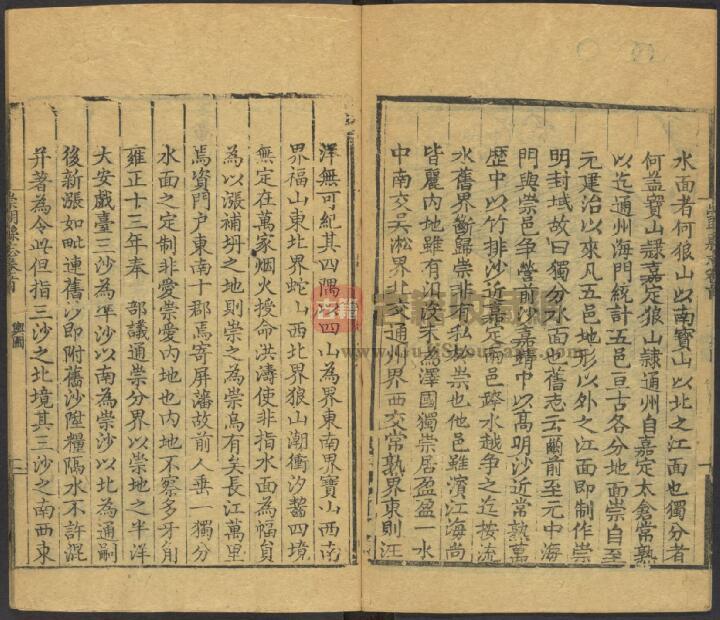 水面者何狼山以南寶山以北之江面也獨分者
何蓋寶山隸嘉定狼山隸通州自嘉定太倉常熟
以迄通州海門統計五邑亘古各分地面崇自至
元建治以來凡五邑地形以外之江面即制作崇
明封域故曰獨分水面也舊志云爾前至元中海
門與崇邑爭營前沙嘉靖中以高明沙近常熟萬
歷中以竹排沙近嘉定兩邑踏水越爭之迄按流
水舊界斷歸崇非不私於崇也他邑雖濵江海尚
皆麗內地雖有沿改未為澤國獨崇居盈盈 水
中南交吴淞界北交通州界西交常熟界東則汪
洋無可紀其四隅四山為界東南界寶山西南
界福山東北界蛇山西北界狼山潮衝汐齧四境
無定在萬家烟火授命洪濤使非指水面為幅員
為以漲補坍之地則崇之為崇烏有矣長江萬里
焉資門户東南十郡焉寄屏藩故前人垂一獨分
水面之定制非愛崇愛內地也內地不察多牙角
雍正十三年奉 部議通崇分界以崇地之半洋
大安戲臺三沙為準沙以南為崇沙以北為通嗣
後新漲如毗連舊沙即附舊沙陞糧隔水不許混
并著為令此但指三沙之北境其三沙之南西東
輿圖
古籍
古籍收藏網
www.GuJiShouCang.com